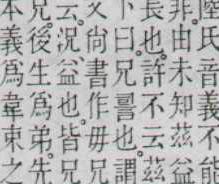 陸氏音義不能
非由未知茲益
長也許不云茲
下曰兄也謂
文尙書作毋兄
云况益也皆兄
兄後生爲弟先
本義爲韋束之